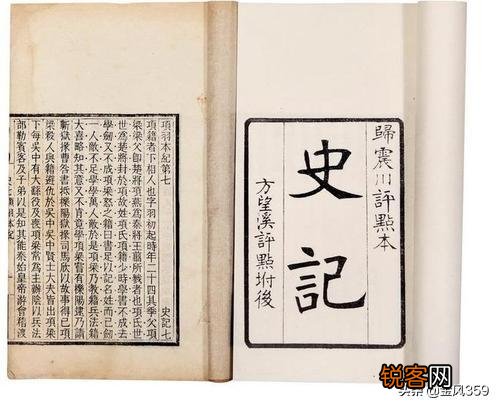 歸震川評點本
史記
方望溪評點坿後
項羽本紀第七
史記七
項籍者下相人也字羽初起時年二十四其季父項
梁梁父即楚將項燕為秦將王翦所戮者也項氏世
世為楚將封於項故姓項氏項籍少時學書不成去
學劍又不成項梁怒之籍曰書足以記名姓而已劍
一人敵不足學學萬人敵於是項梁乃教籍兵法籍
大喜略知其意又不肯竟學項梁嘗有櫟陽逮乃請
蘄獄掾曹咎書抵櫟陽獄掾司馬欣以故事得已項
梁殺人與籍避仇於吳中吳中賢士大夫皆出項梁
下每吳中有大繇役及喪項梁常為主辦陰以兵法
部勒賓客及子弟以是知其能秦始皇帝游會稽渡
锐客网
头条@金风359